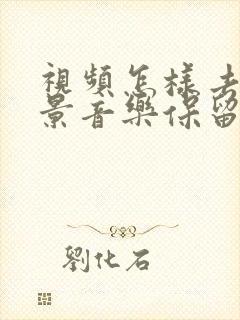 視頻怎樣去
景音樂保留
劉化石